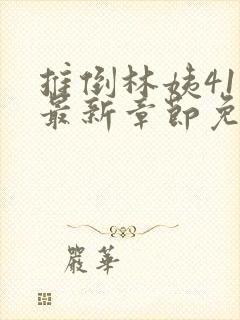 推倒林姨41
最新章節免
嚴華